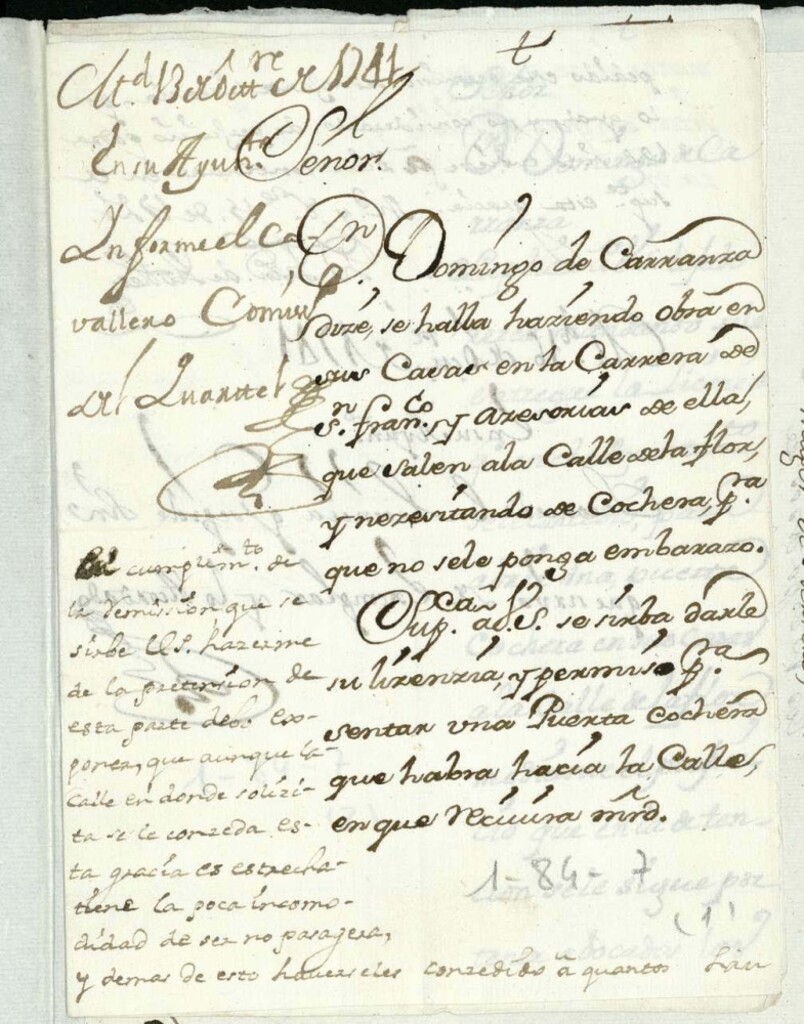 t
Md. 13 de Octre de 1741
En su Ayunto.
Señor.
Informe el Ca-
vallero Comiss.
del Quartel
Dn. Domingo de Carranza
dize, se halla haziendo obra en
sus Casas en la Carrera de
Sn. Franco. y azesorias de ella,
que salen a la Calle de la flor,
y nezesitando de Cochera, pra.
que no se le ponga embarazo.
Supca. a V.S. se sirba darle
su lizenzia, y permiso pra.
sentar una Puerta Cochera
que habra hacia la Calle,
en que rezivira mrd.
En cumplimto. de
la remission que se
sirbe V.S. hazerme
de la pretension de
esta parte debo ex-
poner, que aunque la
Calle en donde solizi-
ta se le conzeda es-
ta gracia es estrecha
tiene la poca incomo-
didad de ser no pasagera,
y demas de esto haverseles conzedido a quantos han
1-84-7
(1)